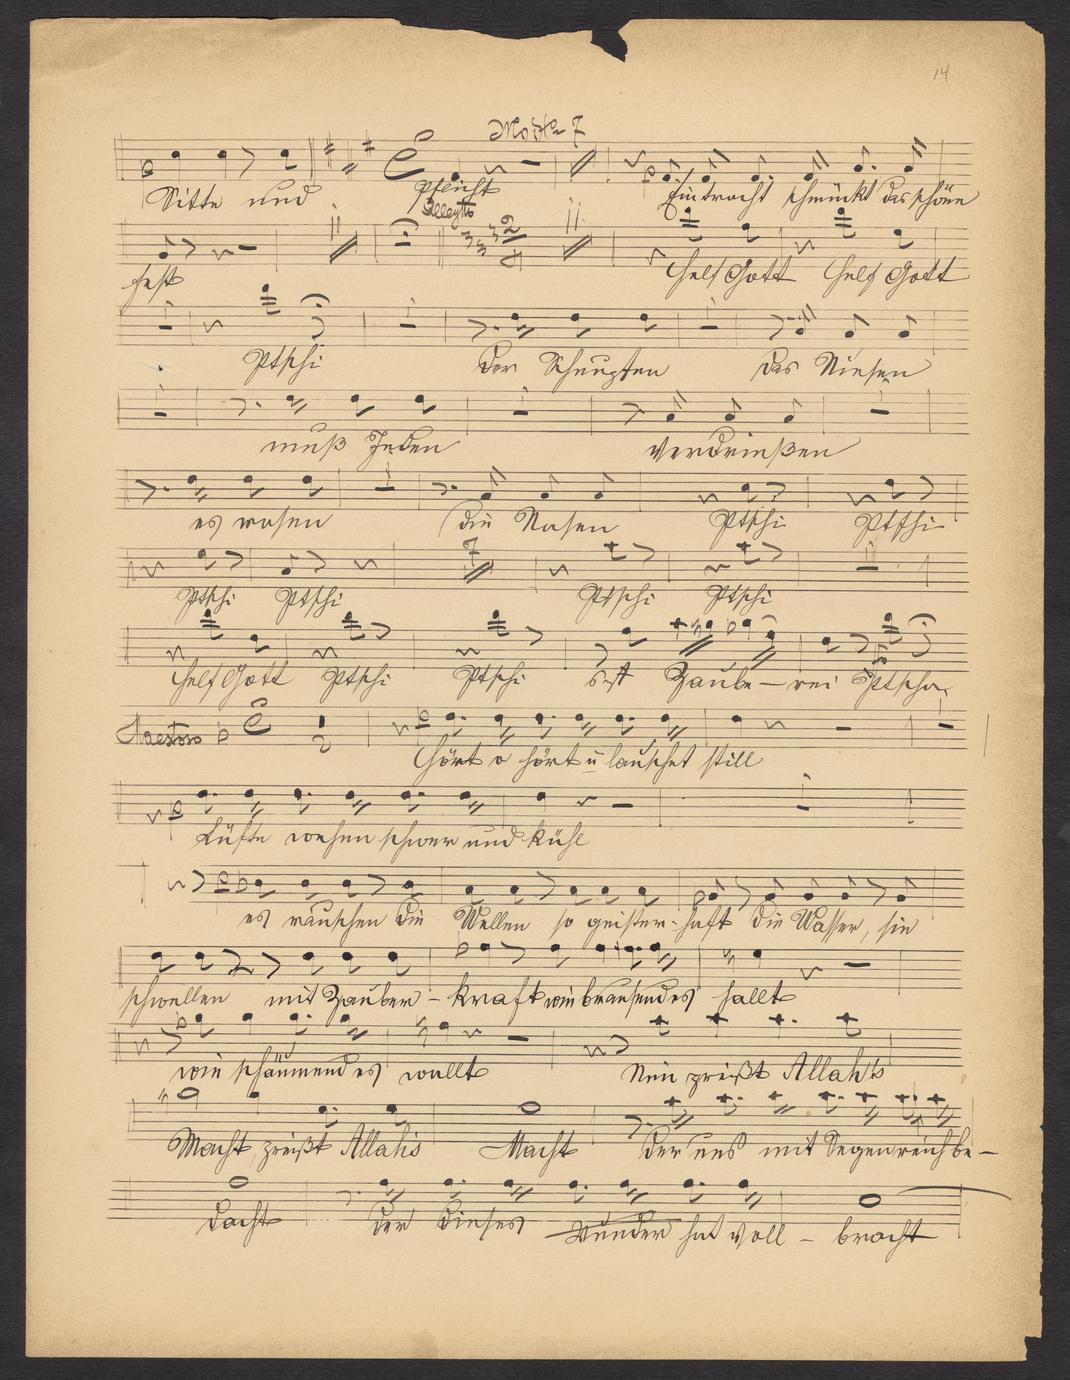 14
Sitte und Pflicht Eintracht schmückt das schöne
Allegtto
Fest Helf Gott Helf Gott
Ptschi Der Schnupfen Das Niesen
muß Jeden verdrießen
es rasen die Nasen Ptschi Ptschi
Ptschi Ptschi 7 Ptschi Ptschi
Helf Gott Ptschi Ptschi ist Zaube-rei Ptscha
Maestoso Hört o hört u lauschet still
Lüfte wehen schwer und kühl
es rauschen die Wellen so geister-haft die Wasser, sie
schwellen mit Zauber-kraft wie brausend es hallt
wie schäumend es wallt Nun preißt Allah's
Macht preißt Allah's Macht der uns mit Segen reich be-
dacht der dieses Wunder hat voll-bracht